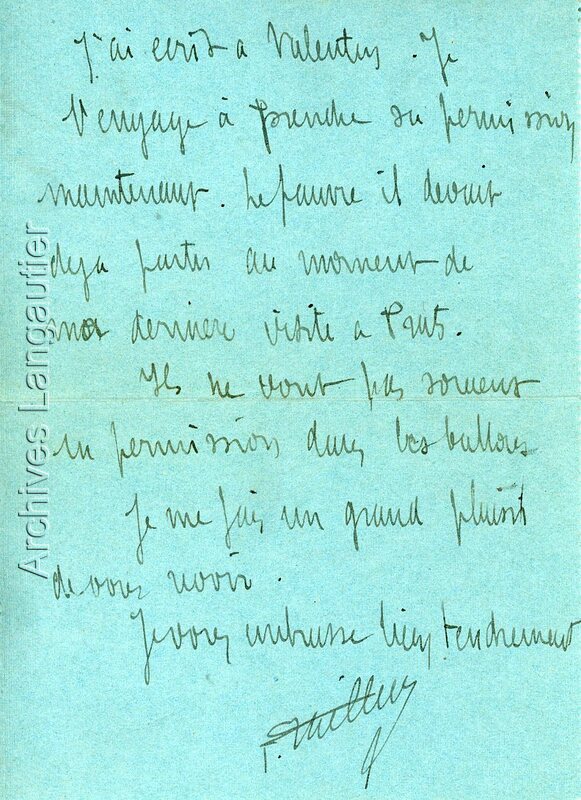 J'ai ecrit a Valentin. Je
l'engage à prendre sa permission
maintenant. Le pauvre il devait
deja partir au moment de
ma derniere visite a
Ils ne vont pas souvent
en permission dans les ballons
Je me fais un grand plaisir
de vous revoir.
Je vous embrasse bien tendrement
Archives Langautier